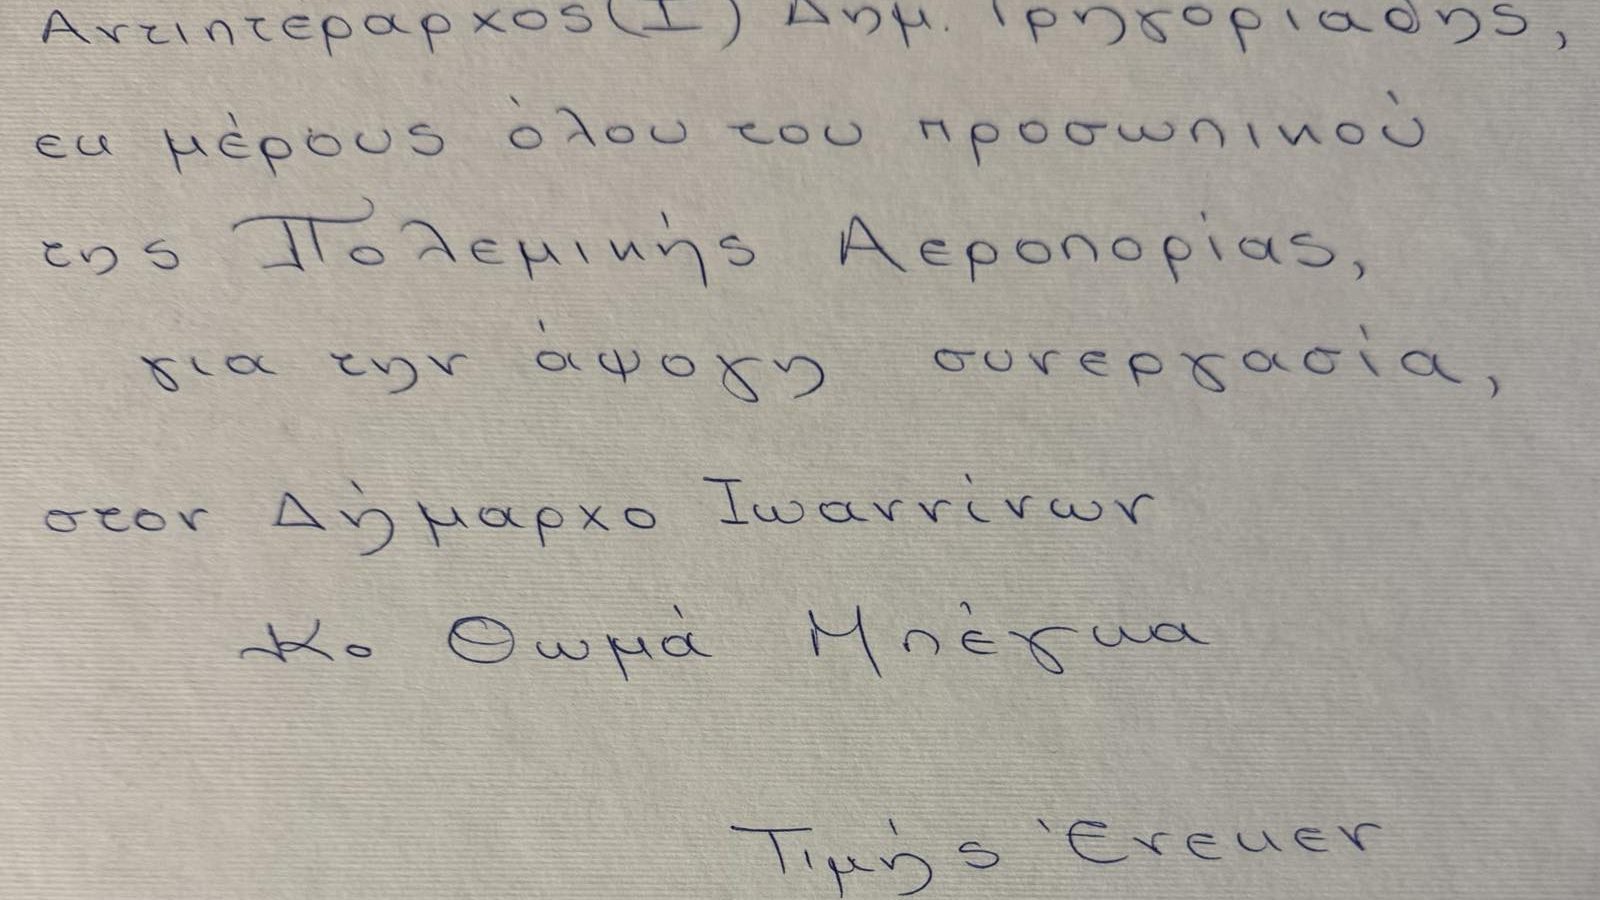 Αντιπτέραρχος(Ι) Δημ. Γρηγοριάδης,
εκ μέρους όλου του προσωπικού
της Πολεμικής Αεροπορίας,
για την άψογη συνεργασία,
στον Δήμαρχο Ιωαννίνων
Κο Θωμά Μπέγκα
Τιμής Ένεκεν